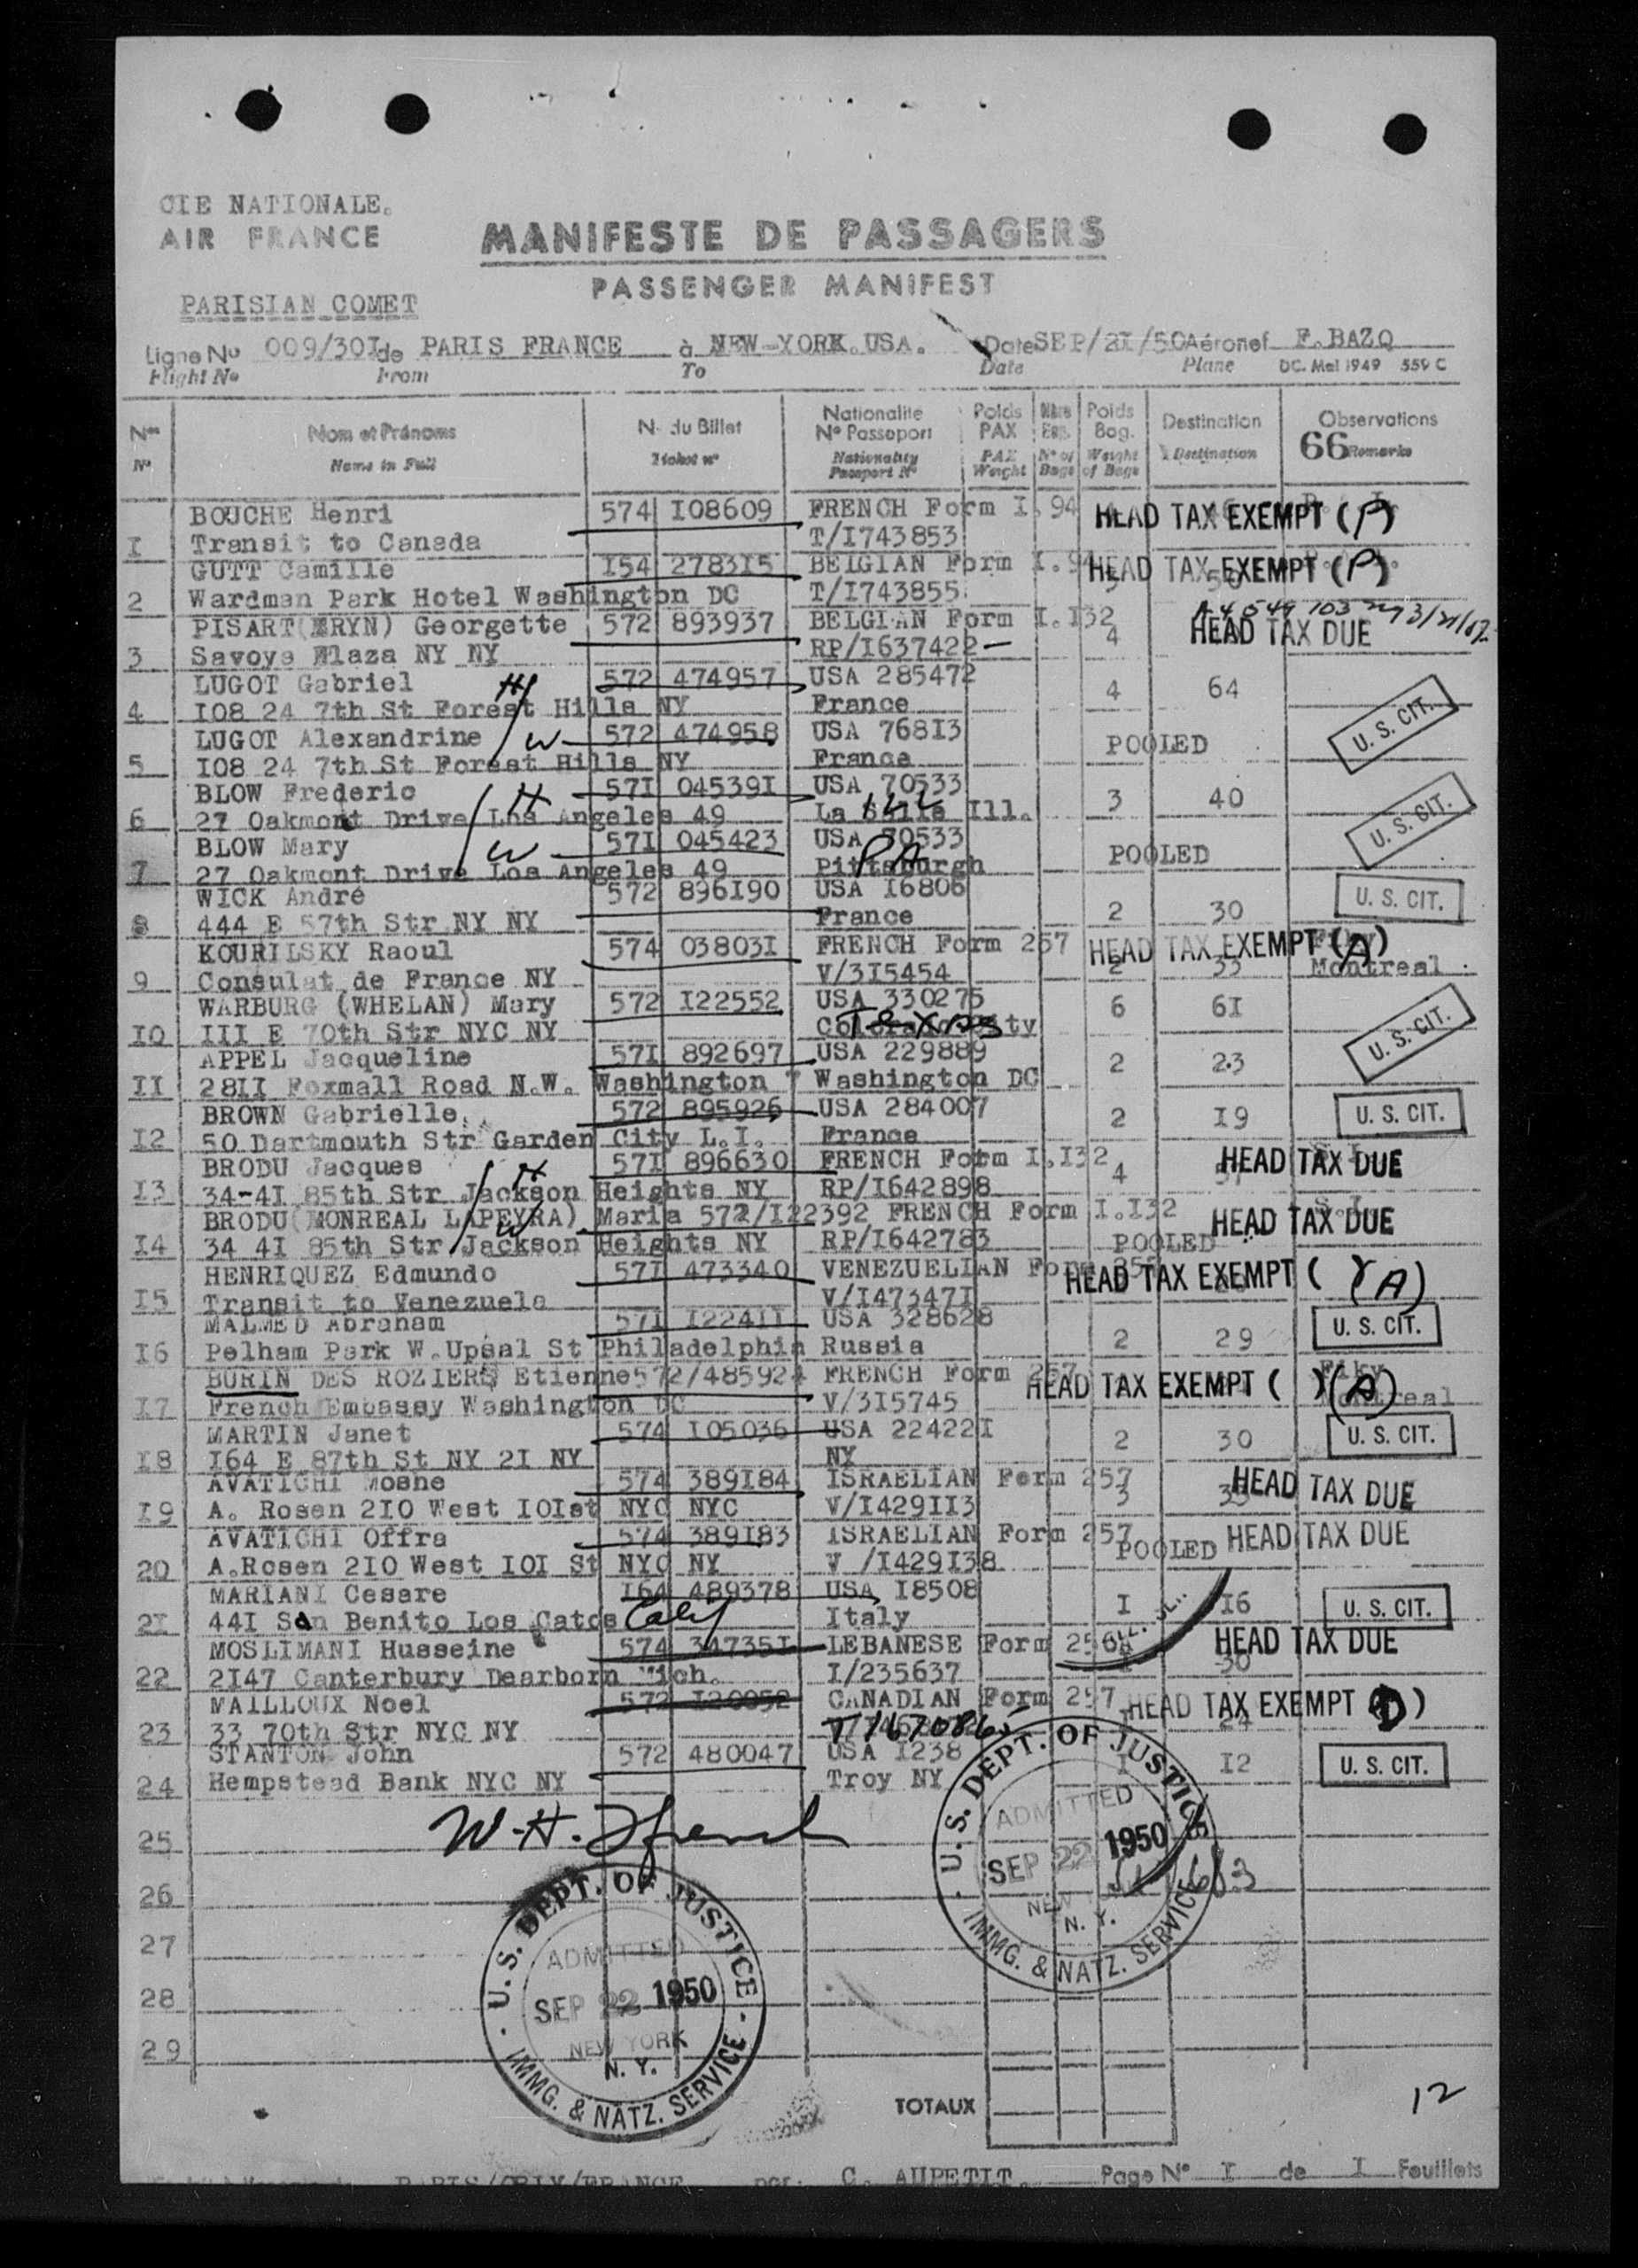 CIE NATIONALE.
AIR FRANCE
MANIFESTE DE PASSAGERS
PASSENGER MANIFEST
PARISIAN COMET
Ligne No 009/30I de PARIS FRANCE à NEW-YORK.USA. Date SEP/2I/50 Aéronef F.BAZQ
Flight No From To Date Plane DC. Mel 1949 559 C
Nos Nom et Prénoms N. du Billet Nationalité No Passeport Poids PAX Nbre Bag. Poids Bag. Destination Observations
No Name in Full Ticket no Nationality Passport No PAX Weight No of Bags Weight of Bags Destination 66 Remarks
BOUCHE Henri 574 I08609 FRENCH Form I.94 HEAD TAX EXEMPT (P)
I Transit to Canada T/I743853
GUTT Camille I54 2783I5 BELGIAN Form I.94 HEAD TAX EXEMPT (P)
2 Wardman Park Hotel Washington DC T/I743855
PISART(ERYN) Georgette 572 893937 BELGIAN Form I.I32 4 HEAD TAX DUE
3 Savoye Plaza NY NY RP/I637422
LUGOT Gabriel H 572 474957 USA 285472 4 64
4 I08 24 7th St Forest Hills NY France U. S. CIT.
LUGOT Alexandrine W 572 474958 USA 768I3 POOLED
5 I08 24 7th St Forest Hills NY France
BLOW Frederic H 57I 04539I USA 70533 3 40
6 27 Oakmont Drive Los Angeles 49 La Salle Ill. U. S. CIT.
BLOW Mary W 57I 045423 USA 70533 POOLED
7 27 Oakmont Drive Los Angeles 49 Pittsburgh PA
WICK André 572 896I90 USA I6806 2 30 U. S. CIT.
8 444 E 57th Str NY NY France
KOURILSKY Raoul 574 03803I FRENCH Form 257 HEAD TAX EXEMPT (A)
9 Consulat de France NY V/3I5454 2 33 Montreal
WARBURG (WHELAN) Mary 572 I22552 USA 330275 6 6I
IO III E 70th Str NYC NY Colorado City Texas U. S. CIT.
APPEL Jacqueline 57I 892697 USA 229889 2 23
II 28II Foxmall Road N.W. Washington 7 Washington DC
BROWN Gabrielle 572 895926 USA 284007 2 I9 U. S. CIT.
I2 50 Dartmouth Str Garden City L.I. France
BRODU Jacques H 57I 896630 FRENCH Form I.I32 4 HEAD TAX DUE
I3 34-4I 85th Str Jackson Heights NY RP/I642898
BRODU(MONREAL LAPEYRA) Maria W 572/I22392 FRENCH Form I.I32 HEAD TAX DUE
I4 34 4I 85th Str Jackson Heights NY RP/I642783 POOLED
HENRIQUEZ Edmundo 57I 473340 VENEZUELIAN Form HEAD TAX EXEMPT ( )(A)
I5 Transit to Venezuela V/I47347I
MALMED Abraham 57I I224II USA 328628 2 29 U. S. CIT.
I6 Pelham Park W.Upsal St Philadelphia Russia
BURIN DES ROZIERS Etienne 572/485924 FRENCH Form 257 HEAD TAX EXEMPT ( )(A)
I7 French Embassy Washington DC V/3I5745 Montreal
MARTIN Janet 574 I05036 USA 22422I 2 30 U. S. CIT.
I8 I64 E 87th St NY 2I NY NY
AVATICHI Moshe 574 389I84 ISRAELIAN Form 257 3 HEAD TAX DUE
I9 A. Rosen 2I0 West I0Ist NYC NYC V/I429II3
AVATICHI Offra 574 389I83 ISRAELIAN Form 257 POOLED HEAD TAX DUE
20 A.Rosen 2I0 West I0I St NYC NY V /I429I38
MARIANI Cesare I64 489378 USA I8508 I I6 U. S. CIT.
2I 44I San Benito Los Catos Calif Italy
MOSLIMANI Husseine 574 34735I LEBANESE Form 256 HEAD TAX DUE
22 2I47 Canterbury Dearborn Mich. I/235637 30
MAILLOUX Noel 572 I20052 CANADIAN Form 257 HEAD TAX EXEMPT (D)
23 33 70th Str NYC NY 24
STANTON John 572 480047 USA I238 I I2 U. S. CIT.
24 Hempstead Bank NYC NY Troy NY
25
26
27
28
29
U. S. DEPT. OF JUSTICE
ADMITTED
SEP 22 1950
NEW YORK
N. Y.
IMMG. & NATZ. SERVICE
U. S. DEPT. OF JUSTICE
ADMITTED
SEP 22 1950
NEW YORK
N. Y.
IMMG. & NATZ. SERVICE
TOTAUX
12
PARIS/ORLY/FRANCE C. AUPETIT. Page No I de I Feuillets